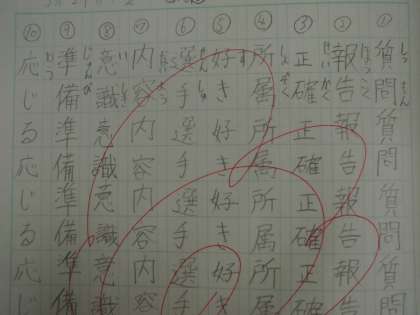 ① 質問質問質問質問
② 報告報告報告報告
③ 正確正確正確正確
④ 所属所属所属所属
⑤ 好き好き好き好き
⑥ 選手選手選手選手
⑦ 内容内容内容内容
⑧ 意識意識意識意識
⑨ 準備準備準備準備
⑩ 応じる応じる応じ